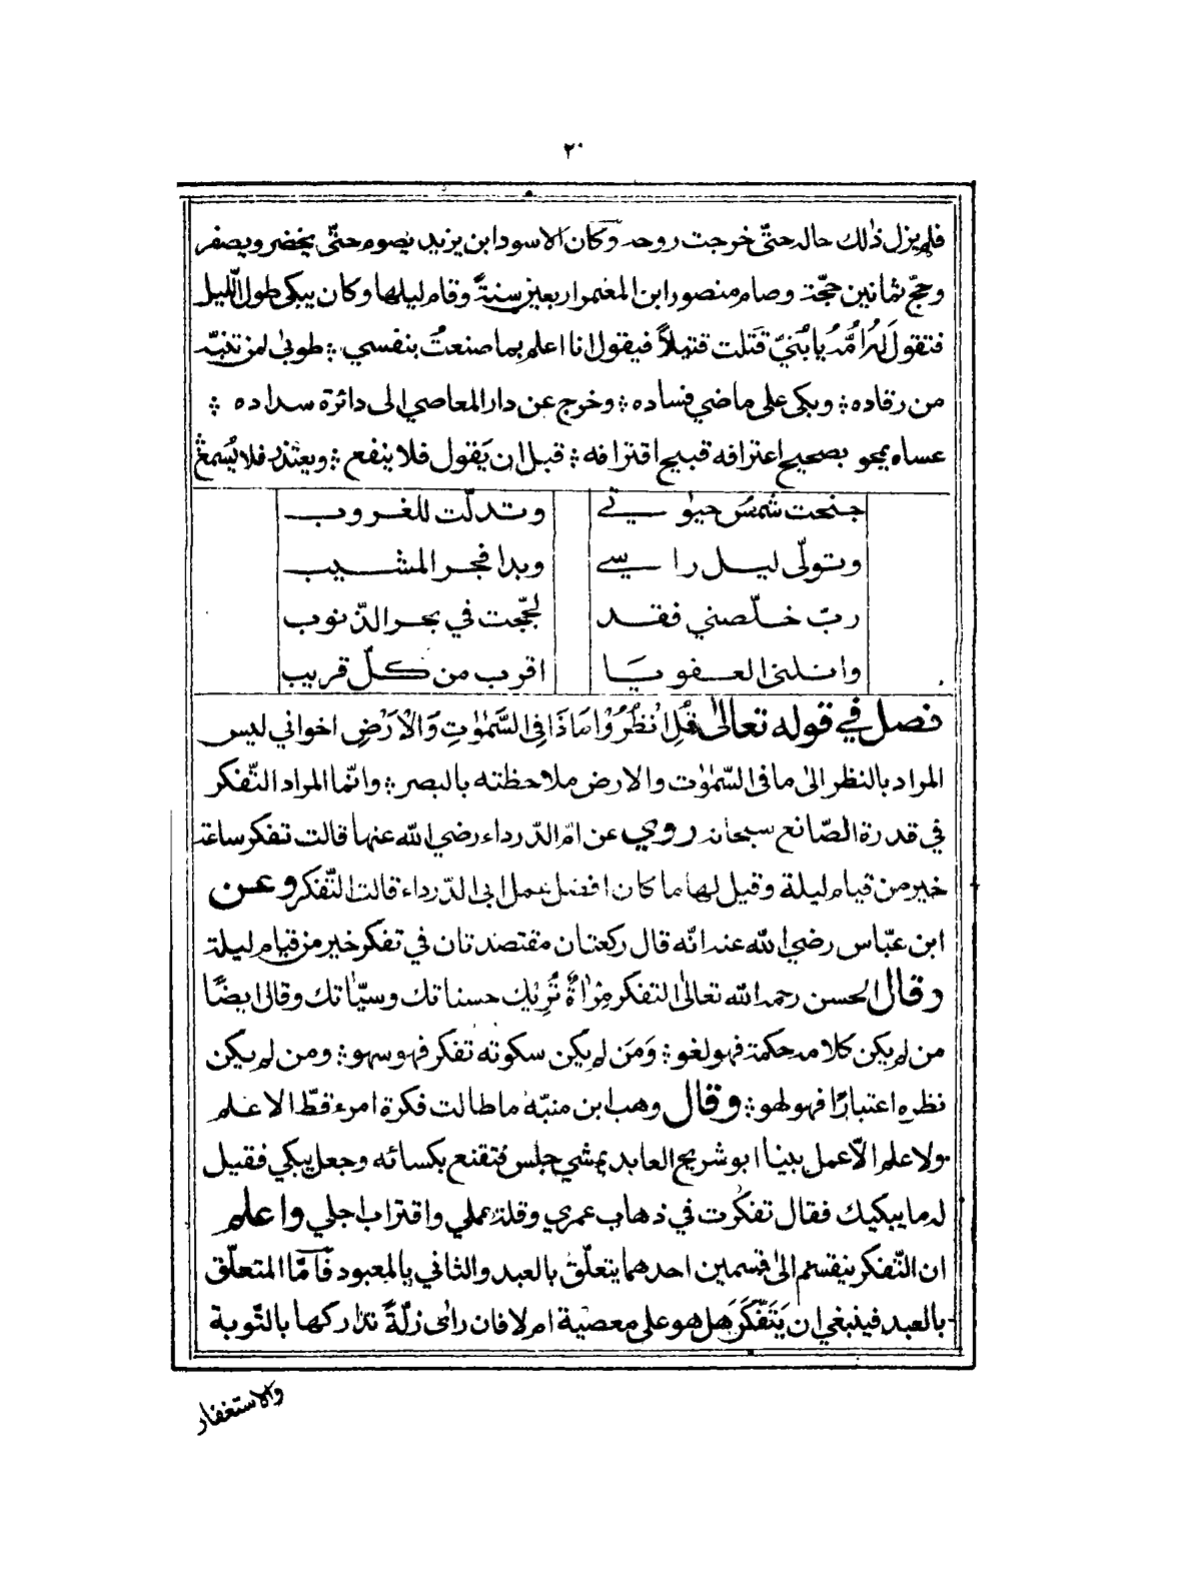 ٢٠
فلم يزل ذٰلك حاله حتّى خرجت روحه وكان الاسود ابن يزيد يصوم حتّى يخضر ويصفر
وحجّ ثمانين حجّة وصام منصور ابن المغمر اربعين سنةً وقام ليلها وكان يبكى طول اللّيل
فتقول لهُ امُّهُ يا بُنيّ قَتلت قتيلاً فيقول انا اعلم بما صنعتُ بنفسي ؞ طوبىٰ لمن تنبّه
من رقاده ؞ وبكى على ماضي فساده ؞ وخرج عن دار المعاصي الى دائرة سداده ؞
عساه يمحو بصحيح اعترافه قبيح اقترافه ؞ قبل ان يَقول فلا ينفع ؞ ويعتذر فلا يُسمعُ
جنحت شمسُ حيوٰتي وتدلّت للغروب
وتولّى ليل راسي وبدا فجر المشيب
ربّ خلّصني فقد لجّجت في بحر الذّنوب
وانلنى العفو يَا اقرب من كلّ قريب
فصل في قوله تعالىٰ قُلِ انْظُرُوْا مَاذَا فِى السَّمٰوٰتِ وَالْاَرْضِ اخواني ليس
المراد بالنظر الىٰ ما فى السّمٰوٰت والارض ملاحظته بالبصر ؞ وانّما المراد التّفكر
في قدرة الصّانع سبحانه روي عن امّ الدّرداء رضي الله عنها قالت تفكر ساعة
خير من قيام ليلة وقيل لها ما كان افضل عمل ابى الدّرداء قالت التّفكر وعن
ابن عبّاس رضي الله عنه انّه قال ركعتان مقتصدتان في تفكر خير من قيام ليلة
وقال الحسن رحمه الله تعالىٰ التفكر مِرْاٰةٌ تُرِيْك حسناتك وسيّاٰتك وقال ايضًا
من لم يكن كلامه حكمة فهو لغو ؞ وَمَن لم يكن سكوته تفكر فهو سهو ؞ ومن لم يكن
نظره اعتبارًا فهو لهو ؞ وقال وهب ابن منبّه ما طالت فكرة امرء قطّ الا علم
ولا علم الّا عمل بينا ابو شريح العابد يمشي جلس فتقنع بكسائه وجعل يبكي فقيل
له ما يبكيك فقال تفكرت في ذهاب عمري وقلة عملي واقتراب اجلي واعلم
ان التّفكر ينقسم الىٰ قسمين احدهما يتعلّق بالعبد والثاني بالمعبود فامّا المتعلّق
بالعبد فينبغي ان يَتَفَّكَرَ هل هو على معصية ام لا فان راٰى زلّةً تداركها بالتّوبة
والاستغفار